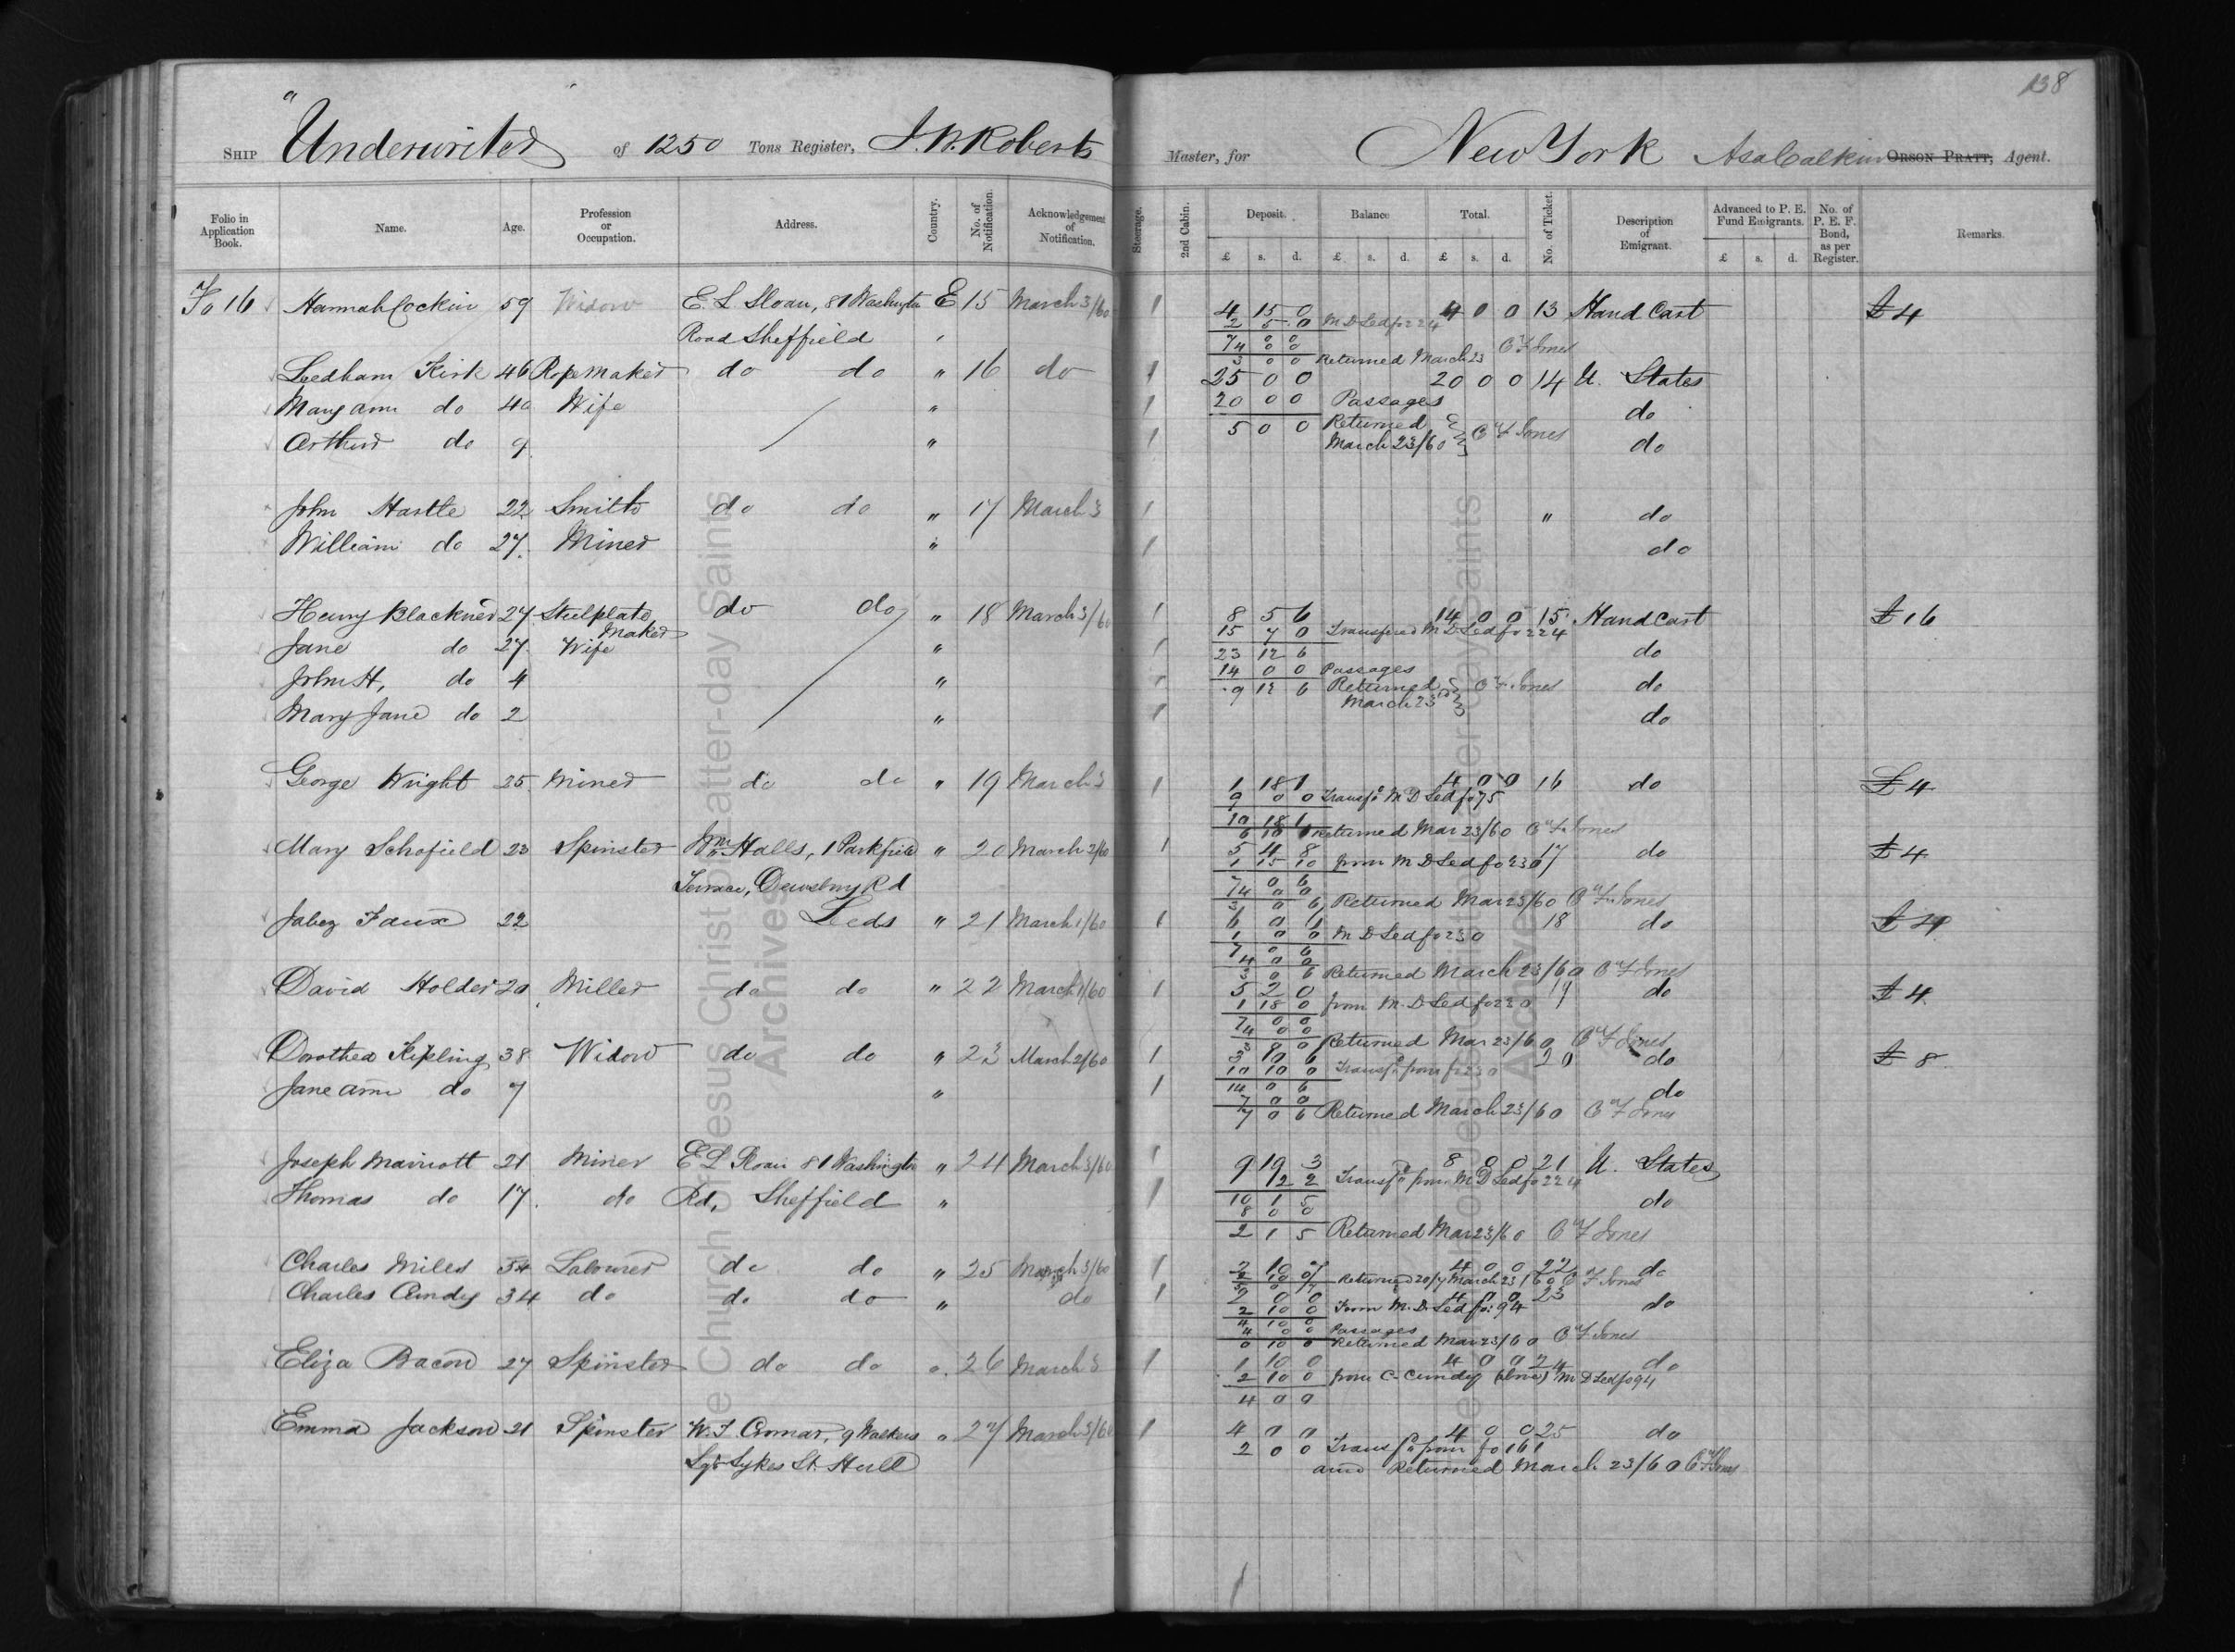 138
Ship "Underwriter" of 1250 Tons Register, J. W. Roberts Master, for New York Asa Calkin Orson Pratt, Agent.
Folio in Application Book. Name. Age. Profession or Occupation. Address. Country. No. of Notification. Acknowledgement of Notification. Steerage. 2nd Cabin. Deposit. Balance Total. No. of Ticket. Description of Emigrant. Advanced to P. E. Fund Emigrants. No. of P. E. F. Bond, as per Register. Remarks.
£ s. d. £ s. d. £ s. d. £ s. d.
Fo 16 Hannah Cockin 59 Widow E. L. Sloan, 81 Washington E 15 March 3/60 1 4 15 0 4 0 0 13 Hand Cart £4
2 5 0 M D Led fo 224
Road Sheffield
7 0 0
4 0 0
3 0 0 Returned March 23 C F Jones
Leedham Kirk 46 Ropemaker do do " 16 do 1 25 0 0 20 0 0 14 U. States
Mary ann do 40 Wife " 1 20 0 0 Passages do
Arthur do 9 " 1 5 0 0 Returned March 23/60 C F Jones do
John Hastle 22 Smith do do " 17 March 3 1 " do
William do 27 Miner " 1 do
Henry Blackner 27 Steelplate Maker do do " 18 March 3/60 1 8 5 6 14 0 0 15 Hand Cart £16
15 7 0 Transfered M D Led fo 224
Jane do 27 Wife " 1 23 12 6 do
14 0 0 Passages
John H, do 4 " 1 9 12 6 Returned March 23 C F Jones do
Mary Jane do 2 " 1 do
George Wright 25 Miner do do " 19 March 3 1 1 18 1 4 0 0 16 do £4
9 0 0 Transfd M D Led fo 75
10 18 1
Returned Mar 23/60 C F Jones
Mary Schofield 23 Spinster Wm Halls, 1 Parkfield " 20 March 2/60 1 5 4 8 17 do £4
1 15 10 from M D Led fo 230
Terrace, Dewsbury Rd
7 0 6
4 0 0
3 0 6 Returned Mar 23/60 C F Jones
Jabez Faux 22 Leeds " 21 March 1/60 1 6 0 6 18 do £4
1 0 0 M D Led fo 230
7 0 6
4 0 0
3 0 6 Returned March 23/60 C F Jones
David Holder 20 Miller do do " 22 March 1/60 1 5 2 0 19 do £4
1 18 0 from M. D Led fo 230
7 0 0
4 0 0
3 0 0 Returned Mar 23/60 C F Jones
Dorothea Kipling 38 Widow do do " 23 March 2/60 1 3 10 6 20 do £8
10 10 0 Transfd from fo 230
Jane ann do 7 " 1 14 0 6 do
7 0 0
7 0 6 Returned March 23/60 C F Jones
Joseph Marriott 21 Miner E L Sloan 81 Washington " 24 March 3/60 1 9 19 3 8 0 0 21 U. States
2 2 Transfd from M D Led fo 224
Thomas do 17 do Rd, Sheffield " 1 10 1 5 do
8 0 0
2 1 5 Returned Mar 23/60 C F Jones
Charles Miles 34 Labourer do do " 25 March 3/60 1 4 0 0 22 do
Returned 20/7 March 23/60 C F Jones
Charles Cundy 34 do do do " do 1 2 0 0 4 0 0 23 do
2 10 0 From M. D. Led fo: 94
4 10 0
4 0 0 Passages
0 10 0 Returned Mar 23/60 C F Jones
Eliza Bacon 27 Spinster do do " 26 March 3 1 1 10 0 4 0 0 24 do
2 10 0 from C. Cundy (above) M D Led fo 94
4 0 0
Emma Jackson 21 Spinster W. J. Cromar, 9 Walkers " 27 March 3/60 1 4 0 0 4 0 0 25 do
2 0 0 Transfd from fo 161
Sqr Sykes St. Hull
and Returned March 23/60 C F Jones
The Church of Jesus Christ of Latter-day Saints
Archives
The Church of Jesus Christ of Latter-day Saints
Archives